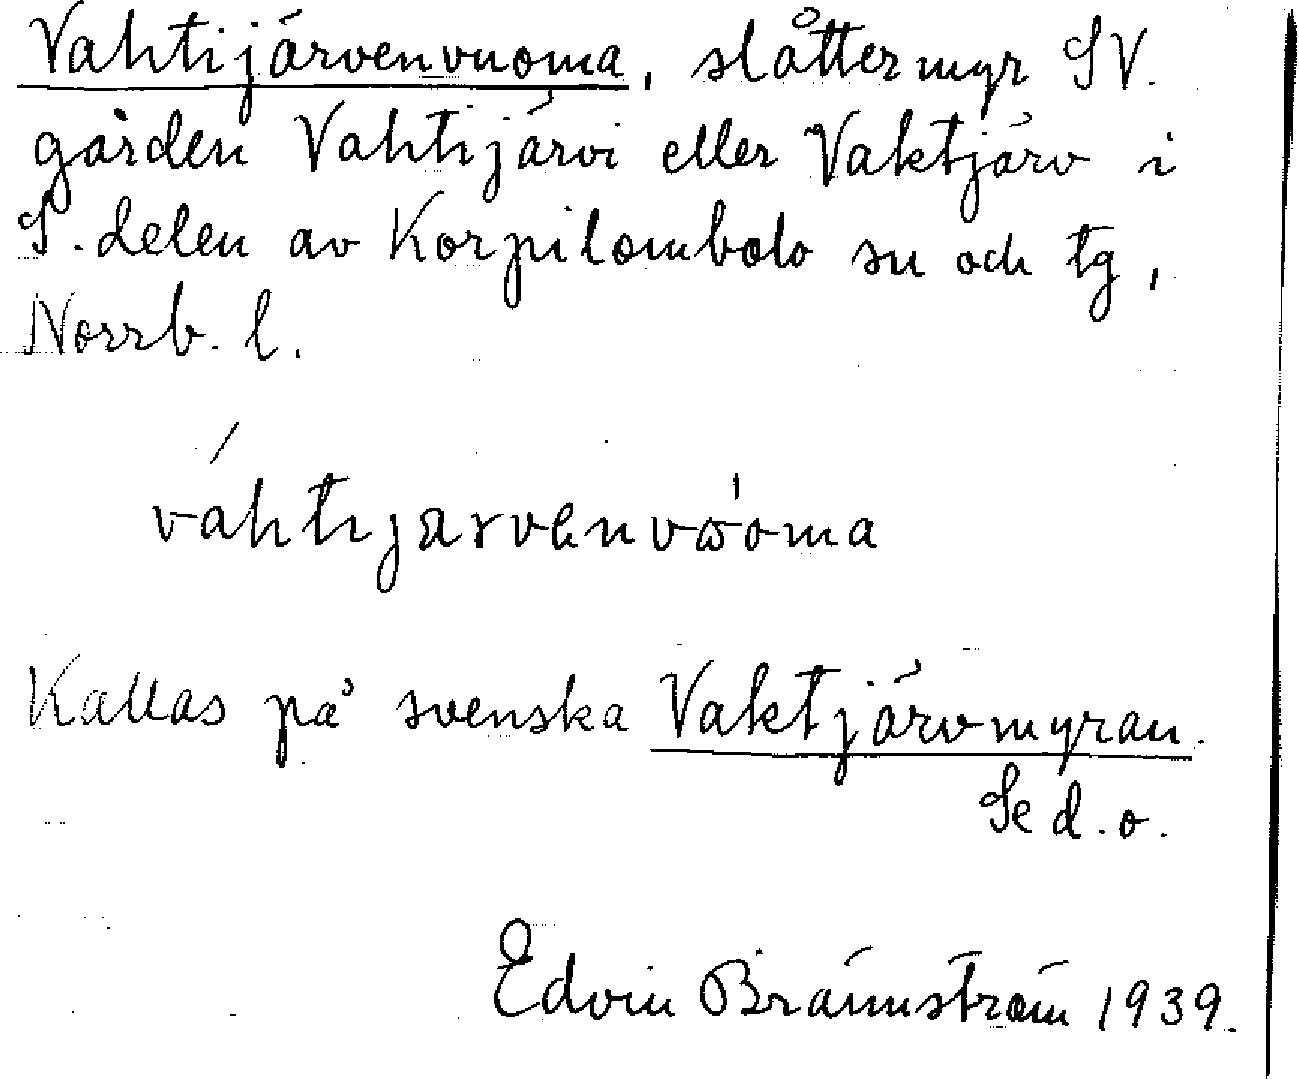 Vahtijärvenvuoma, slåttermyr SV.
gården Vahtijärvi eller Vaktjärv i
S. delen av Korpilombolo sn och tg,
Norrb. l.
váhtijarvenvω'oma
Kallas på svenska Vaktjärvmyran.
Se d. o.
Edvin Brännström 1939.